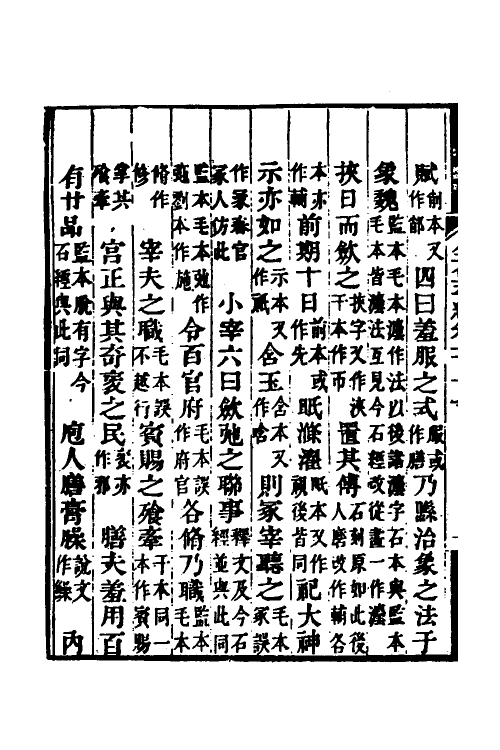 賦劍本又作部四曰羞服之式服或作膳乃縣治象之法于
象魏監本毛本灋作法以後諸灋字石本與監本毛本皆灋法互見今石經改從畫一作灋
挾日而斂之挾字又作浹干本作帀置其傅石刻原如此後人磨改作輔各
本亦作輔前期十日前本或作先眡滌濯眂本又作視後皆同祀大神
示亦如之示本又作祇含玉含本又作唅則冢宰聽之毛本冢誤
作家春官冢人仿此小宰六曰斂弛之聯事釋文及今石經並與此同
監本毛本弛作㢮劉本作施令百官府毛本誤作府官各脩乃職監本毛本
脩作修宰夫之職毛本誤不越行賓賜之飧牽干本同一本作賓賜
掌其飧牽宮正與其奇衺之民衺亦作邪膳夫羞用百
有廿品監本脫有字今石經與此同庖人膳膏臊說文作鱢內